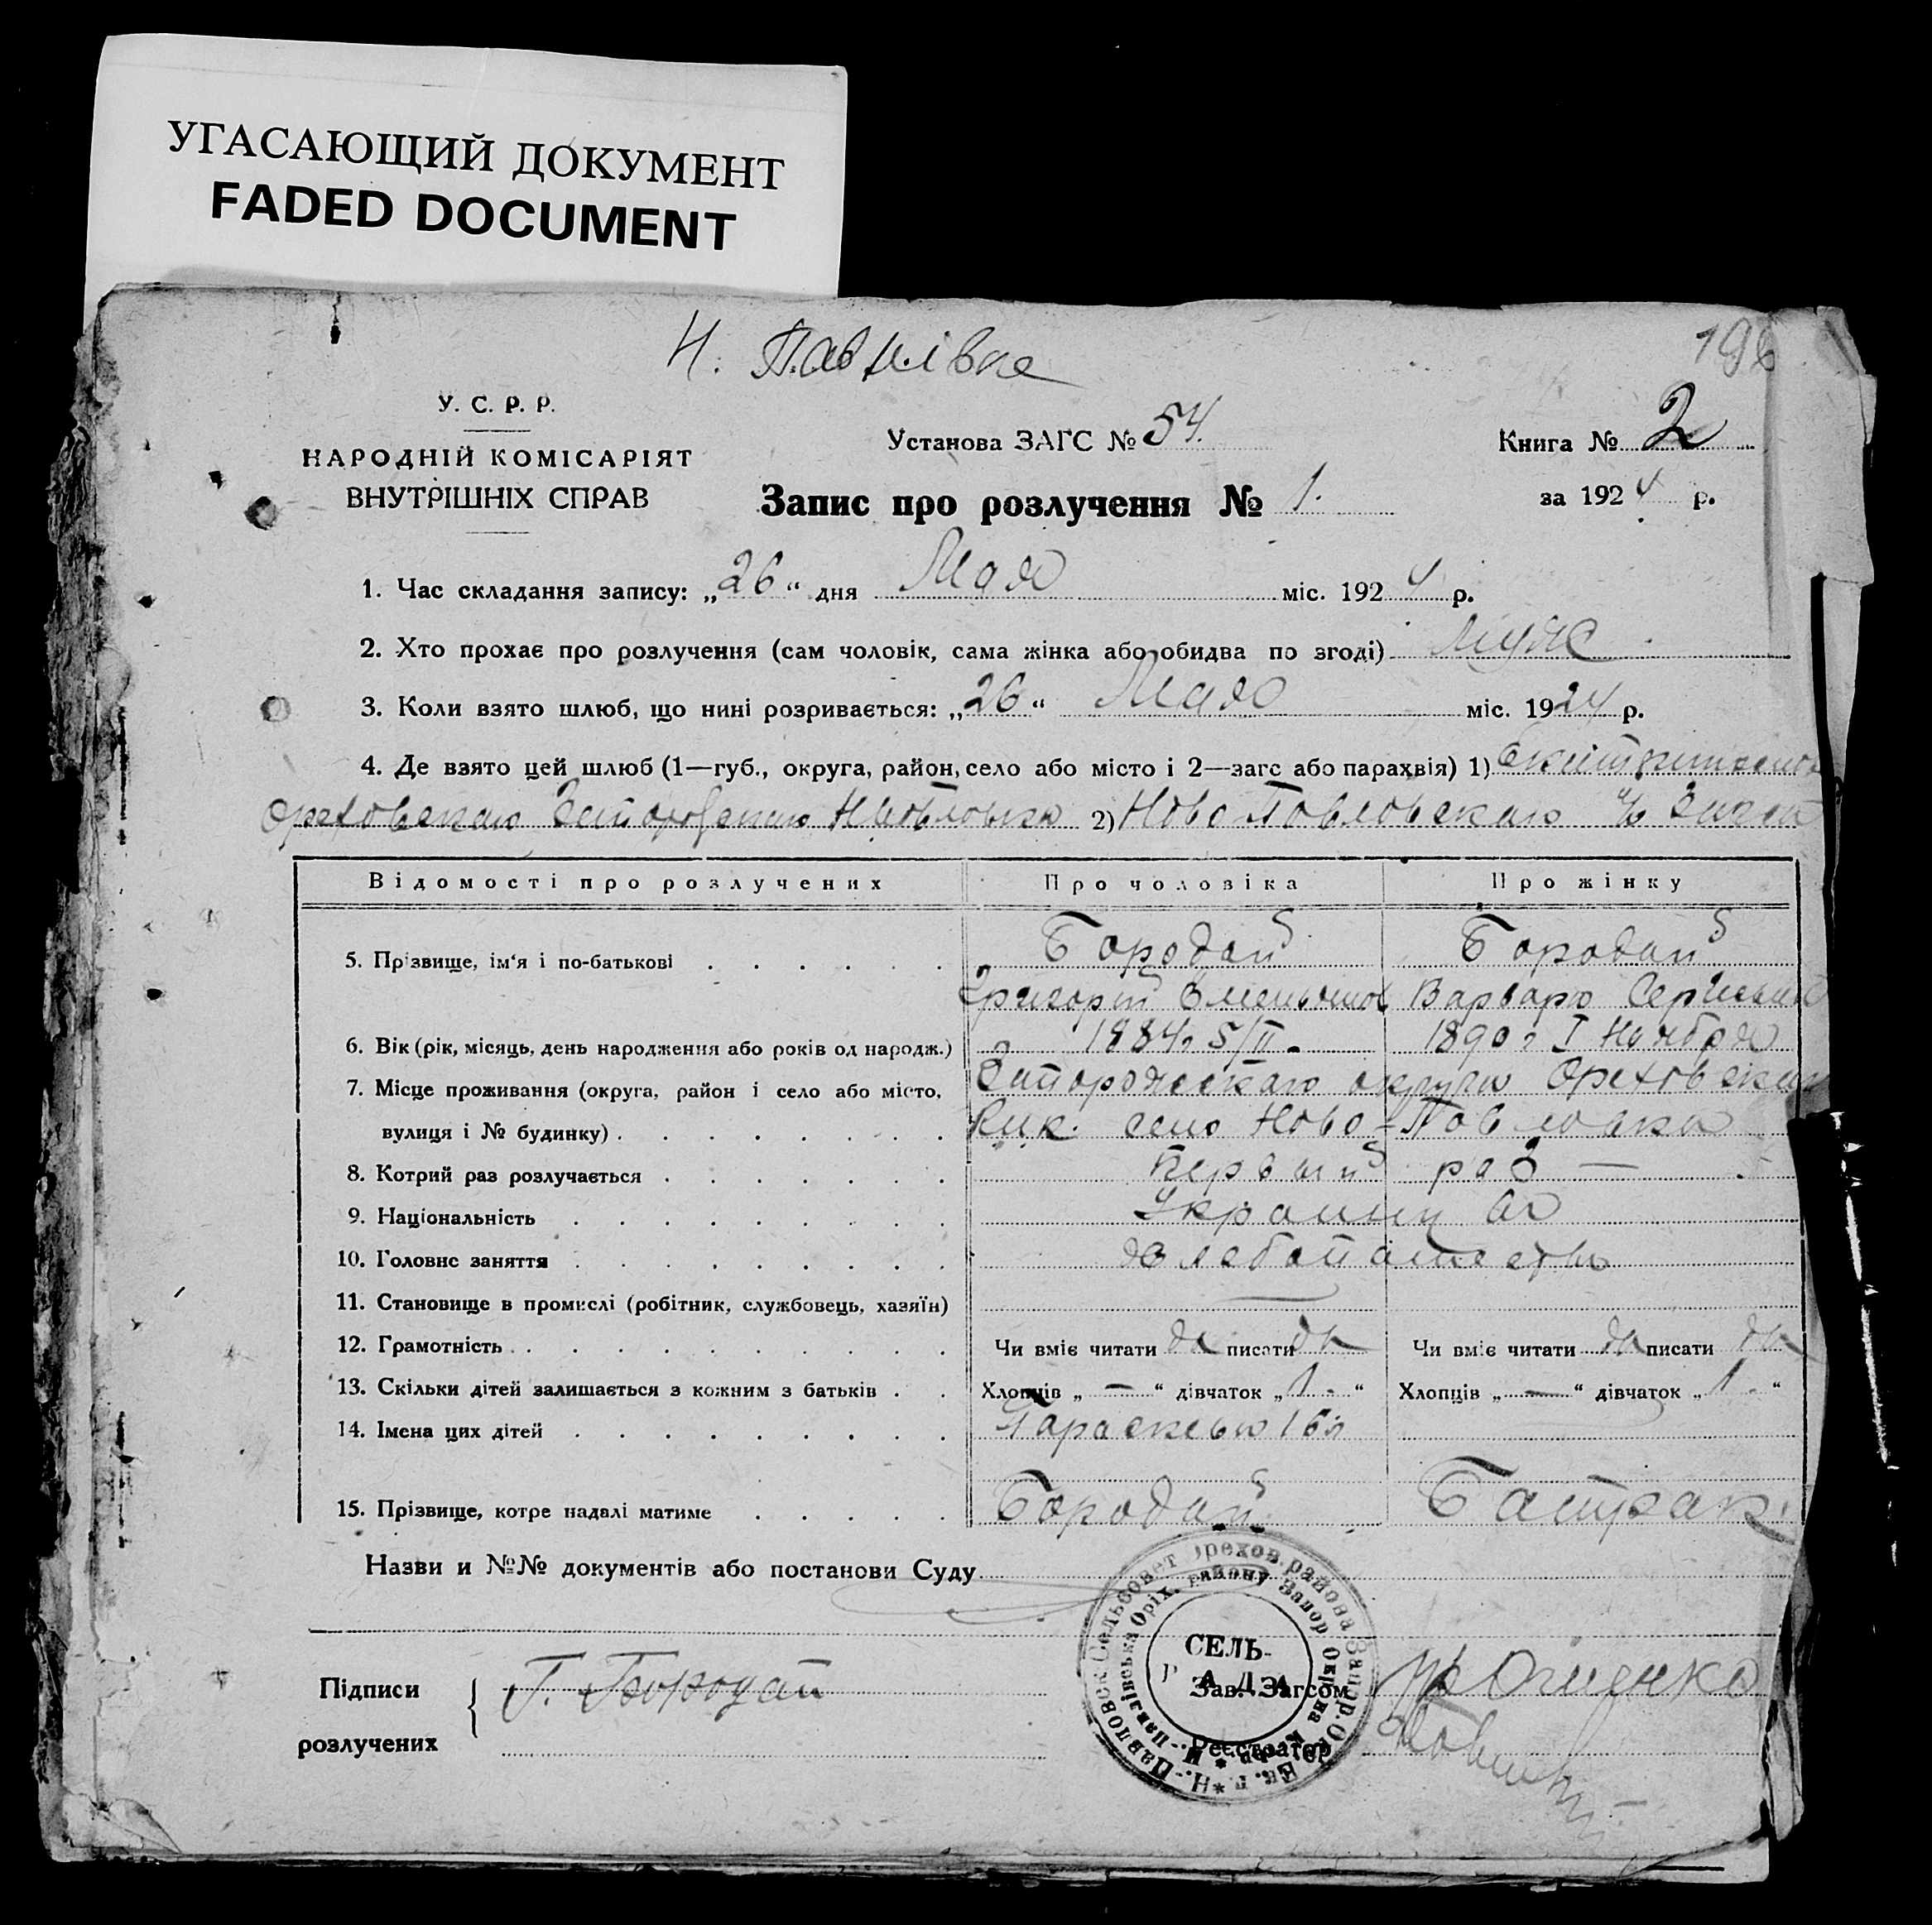 УГАСАЮЩИЙ ДОКУМЕНТ
FADED DOCUMENT
Н. Павлівка
196
У. С. Р. Р.
НАРОДНІЙ КОМІСАРІЯТ
ВНУТРІШНІХ СПРАВ
Установа ЗАГС № 54.
Книга № 2
Запис про розлучення № 1.
за 1924 р.
1. Час складання запису: „26“ дня Мая міс. 1924 р.
2. Хто прохає про розлучення (сам чоловік, сама жінка або обидва по згоді) муж
3. Коли взято шлюб, що нині розривається: „26“ Мая міс. 1924 р.
4. Де взято цей шлюб (1—губ., округа, район, село або місто і 2—загс або парахвія) 1)
Ореховскаго 2) Ново Павловскаго
Відомості про розлучених Про чоловіка Про жінку
5. Прізвище, ім'я і по-батькові Бородай Бородай
Григорий Варвара
6. Вік (рік, місяць, день народження або років од народж.) 1884г 5/II. 1890г I Ноября
7. Місце проживання (округа, район і село або місто, Запорожскаго округи Ореховскаго
вулиця і № будинку) село Ново-Павловка
8. Котрий раз розлучається первый раз —
9. Національність
10. Головне заняття хлебопашество
11. Становище в промислі (робітник, службовець, хазяїн) —
12. Грамотність Чи вміє читати да писати да Чи вміє читати да писати да
13. Скільки дітей залишається з кожним з батьків Хлопців „—“ дівчаток „1.“ Хлопців „—“ дівчаток „1.“
14. Імена цих дітей Параскевья 16л
15. Прізвище, котре надалі матиме Бородай Бастрак.
Назви и №№ документів або постанови Суду
Н.-Павловск. Сельсовет Орехов. района Запор. Окр. Ек. г.
Н.-Павлівська Оріх. району Запор Округа
СЕЛЬ-
РАДА
Підписи
розлучених
Г. Бородай
Зав. Загсом
Реєстратор